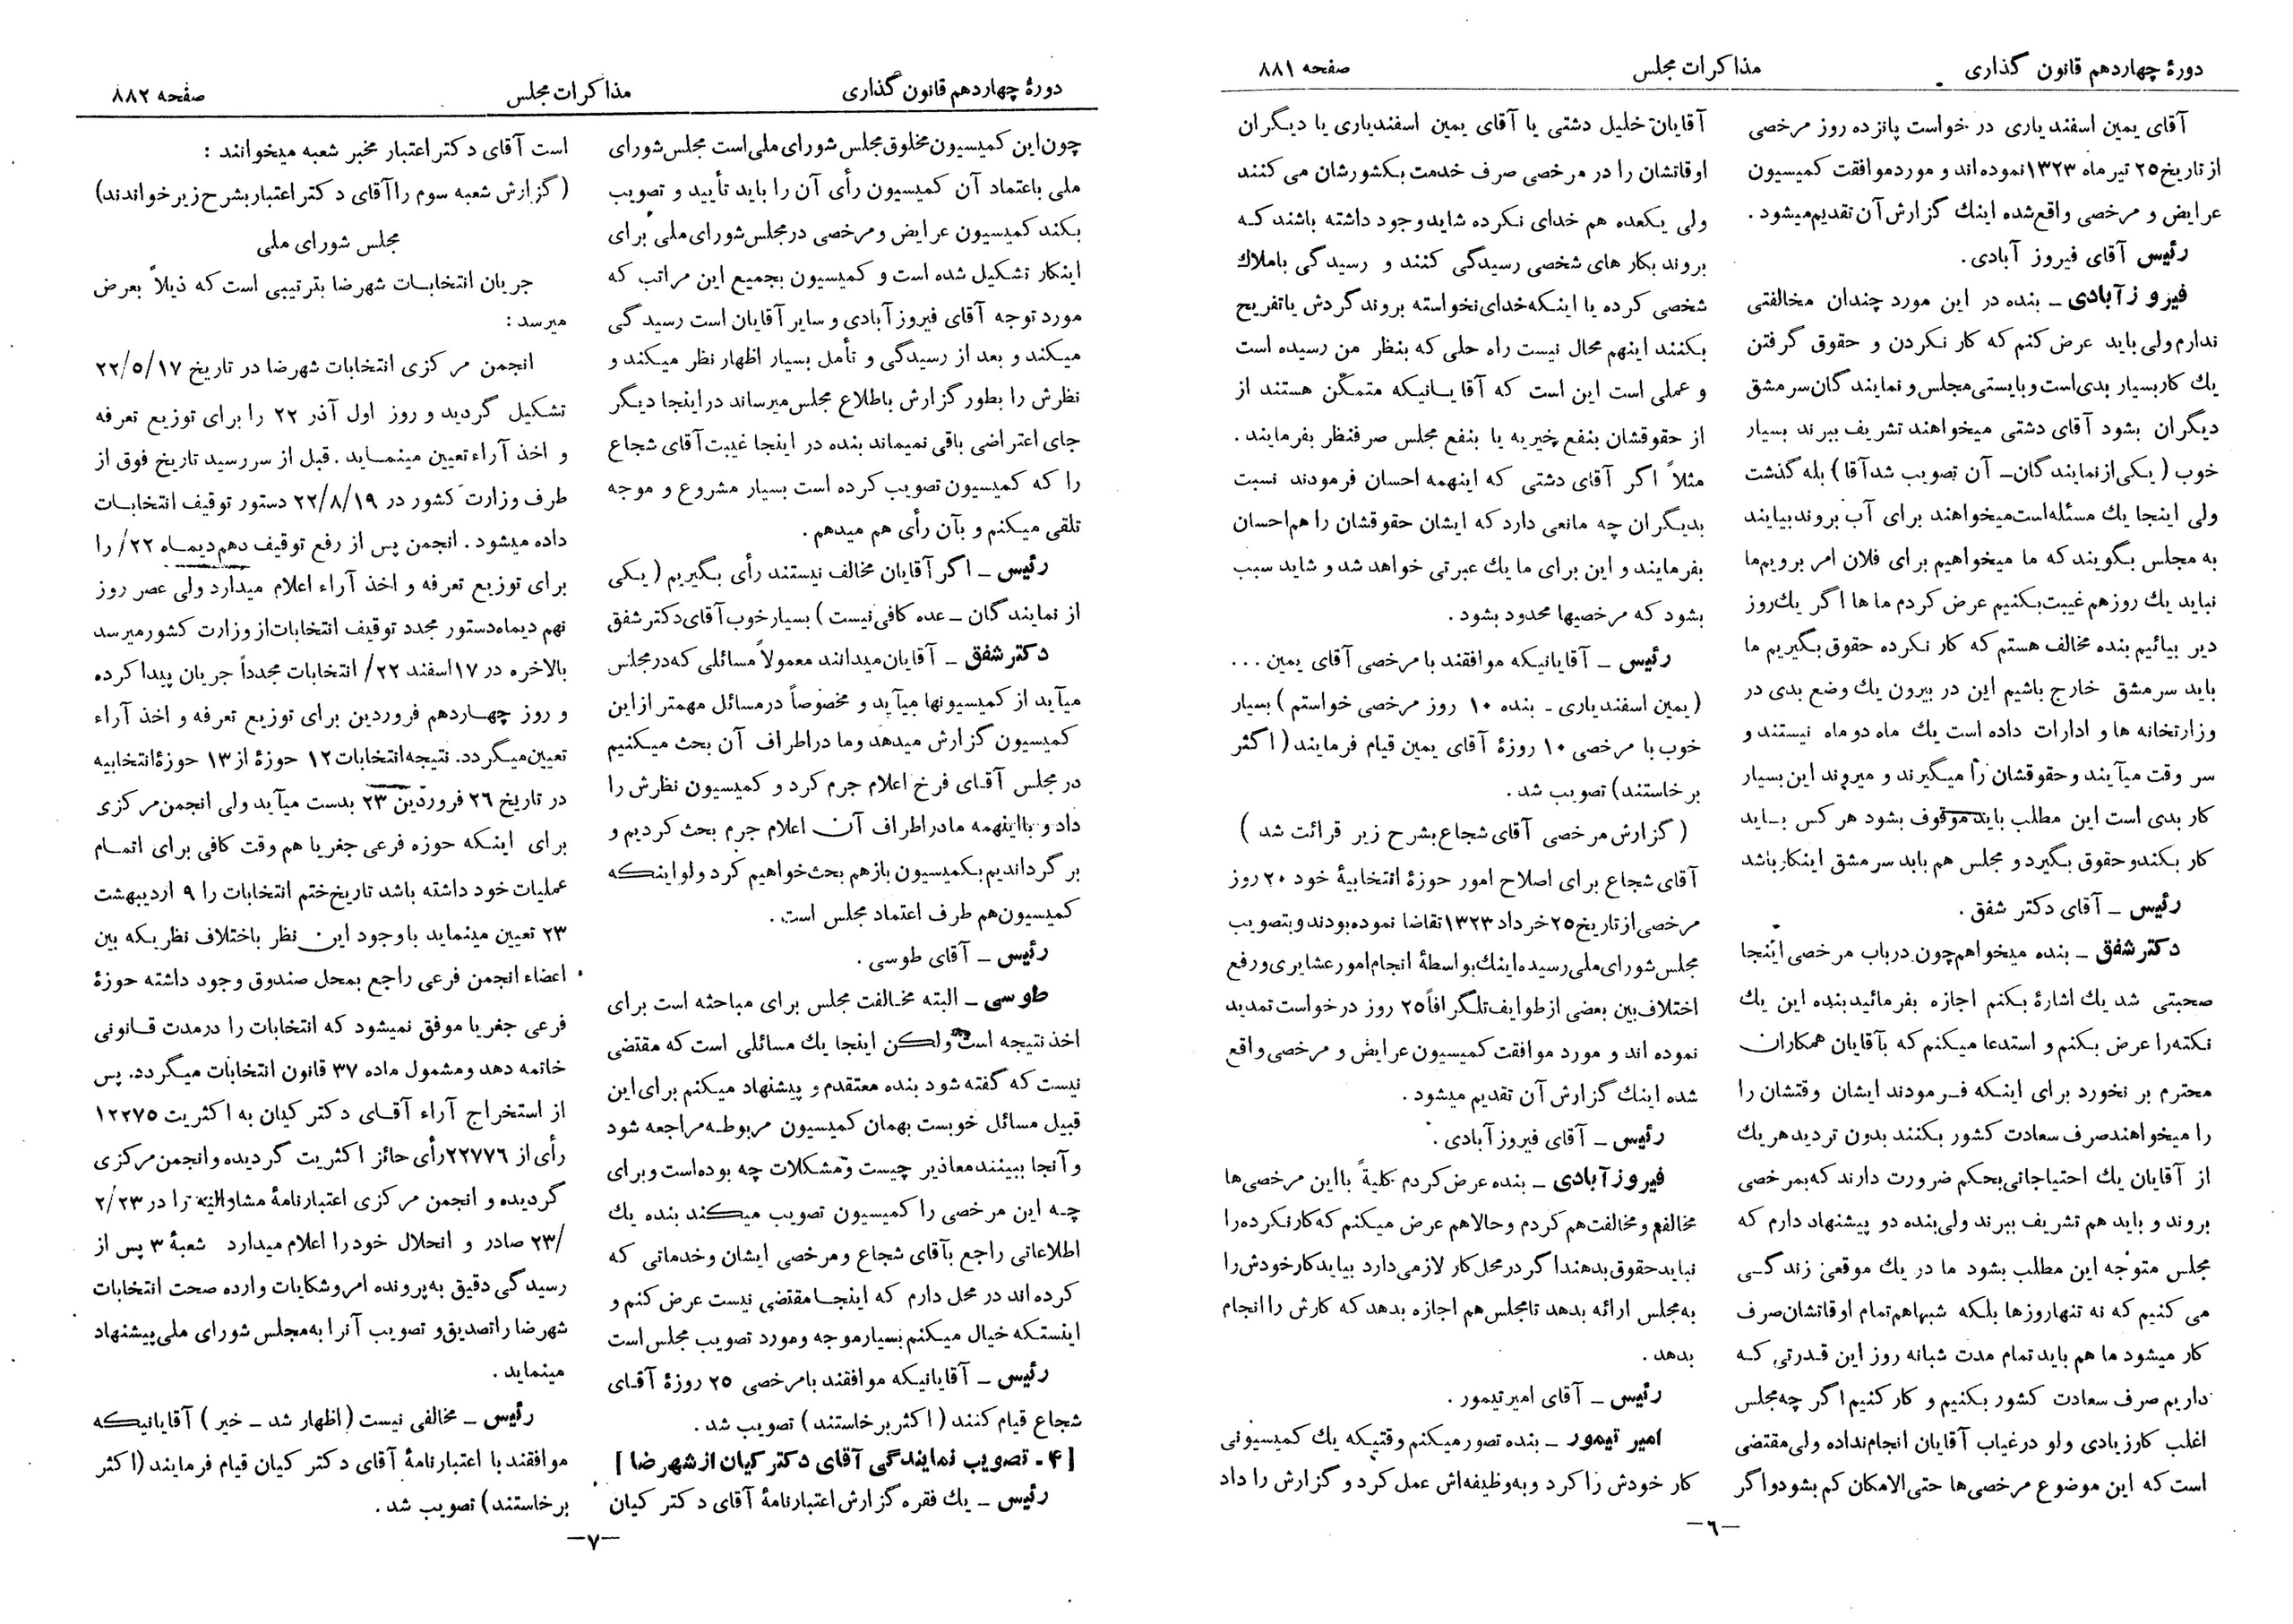 دورهٔ چهاردهم قانون گذاری
مذاکرات مجلس
صفحه ۸۸۱
آقای یمین اسفندیاری در خواست پانزده روز مرخصی
از تاریخ ۲۵ تیر ماه ۱۳۲۳ نموده‌اند و مورد موافقت کمیسیون
عرایض و مرخصی واقع شده اینك گزارش آن تقدیم میشود.
رئیس آقای فیروز آبادی.
فیروز آبادی ـ بنده در این مورد چندان مخالفتی
ندارم ولی باید عرض کنم که کار نکردن و حقوق گرفتن
یك کار بسیار بدی است و بایستی مجلس و نمایندگان سرمشق
دیگران بشود آقای دشتی میخواهند تشریف ببرند بسیار
خوب (یکی از نمایندگان ـ آن تصویب شد آقا) بله گذشت
ولی اینجا یك مسئله است میخواهند برای آب بروند بیایند
به مجلس بگویند که ما میخواهیم برای فلان امر برویم ما
نباید یك روز هم غیبت بکنیم عرض کردم ماها اگر یك روز
دیر بیائیم بنده مخالف هستم که کار نکرده حقوق بگیریم ما
باید سرمشق خارج باشیم این در بیرون یك وضع بدی در
وزارتخانه ها و ادارات داده است یك ماه دو ماه نیستند و
سر وقت میآیند و حقوقشان را میگیرند و میروند این بسیار
کار بدی است این مطلب باید موقوف بشود هر کس باید
کار بکند و حقوق بگیرد و مجلس هم باید سرمشق اینکار باشد
رئیس ـ آقای دکتر شفق.
دکتر شفق ـ بنده میخواهم چون در باب مرخصی اینجا
صحبتی شد یك اشارهٔ بکنم اجازه بفرمائید بنده این یك
نکته را عرض بکنم و استدعا میکنم که بآقایان همکاران
محترم بر نخورد برای اینکه فرمودند ایشان وقتشان را
را میخواهند صرف سعادت کشور بکنند بدون تردید هر یك
از آقایان یك احتیاجاتی بحکم ضرورت دارند که بمرخصی
بروند و باید هم تشریف ببرند ولی بنده دو پیشنهاد دارم که
مجلس متوجه این مطلب بشود ما در یك موقعی زندگی
می کنیم که نه تنها روزها بلکه شبها هم تمام اوقاتشان صرف
کار میشود ما هم باید تمام مدت شبانه روز این قدرتی که
داریم صرف سعادت کشور بکنیم و کار کنیم اگر چه مجلس
اغلب کار زیادی ولو در غیاب آقایان انجام نداده ولی مقتضی
است که این موضوع مرخصی‌ها حتی الامکان کم بشود و اگر
آقایان خلیل دشتی یا آقای یمین اسفندیاری یا دیگران
اوقاتشان را در مرخصی صرف خدمت بکشورشان می کنند
ولی یکعده هم خدای نکرده شاید وجود داشته باشند که
بروند بکار های شخصی رسیدگی کنند و رسیدگی باملاك
شخصی کرده یا اینکه خدای نخواسته بروند گردش یا تفریح
بکنند اینهم محال نیست راه حلی که بنظر من رسیده است
و عملی است این است که آقایانیکه متمکن هستند از
از حقوقشان بنفع خیریه یا بنفع مجلس صرفنظر بفرمایند.
مثلاً اگر آقای دشتی که اینهمه احسان فرمودند نسبت
بدیگران چه مانعی دارد که ایشان حقوقشان را هم احسان
بفرمایند و این برای ما یك عبرتی خواهد شد و شاید سبب
بشود که مرخصیها محدود بشود.
رئیس ـ آقایانیکه موافقند با مرخصی آقای یمین ...
(یمین اسفندیاری ـ بنده ۱۰ روز مرخصی خواستم) بسیار
خوب با مرخصی ۱۰ روزهٔ آقای یمین قیام فرمایند (اکثر
برخاستند) تصویب شد.
(گزارش مرخصی آقای شجاع بشرح زیر قرائت شد)
آقای شجاع برای اصلاح امور حوزهٔ انتخابیهٔ خود ۲۰ روز
مرخصی از تاریخ ۲۵ خرداد ۱۳۲۳ تقاضا نموده بودند و بتصویب
مجلس شورای ملی رسیده اینك بواسطهٔ انجام امور عشایری و رفع
اختلاف بین بعضی از طوایف تلگرافاً ۲۵ روز درخواست تمدید
نموده اند و مورد موافقت کمیسیون عرایض و مرخصی واقع
شده اینك گزارش آن تقدیم میشود.
رئیس ـ آقای فیروز آبادی.
فیروز آبادی ـ بنده عرض کردم کلیةً با این مرخصی‌ها
مخالفم و مخالفت هم کردم و حالا هم عرض میکنم که کار نکرده را
نباید حقوق بدهند اگر در محل کار لازمی دارد بیاید کار خودش را
به مجلس ارائه بدهد تا مجلس هم اجازه بدهد که کارش را انجام
بدهد.
رئیس ـ آقای امیر تیمور.
امیر تیمور ـ بنده تصور میکنم وقتیکه یك کمیسیونی
کار خودش را کرد و به وظیفه‌اش عمل کرد و گزارش را داد
ـ۶ـ
دورهٔ چهاردهم قانون گذاری
مذاکرات مجلس
صفحه ۸۸۲
چون این کمیسیون مخلوق مجلس شورای ملی است مجلس شورای
ملی باعتماد آن کمیسیون رأی آن را باید تأیید و تصویب
بکند کمیسیون عرایض و مرخصی در مجلس شورای ملی برای
اینکار تشکیل شده است و کمیسیون بجمیع این مراتب که
مورد توجه آقای فیروز آبادی و سایر آقایان است رسیدگی
میکند و بعد از رسیدگی و تأمل بسیار اظهار نظر میکند و
نظرش را بطور گزارش باطلاع مجلس میرساند در اینجا دیگر
جای اعتراضی باقی نمیماند بنده در اینجا غیبت آقای شجاع
را که کمیسیون تصویب کرده است بسیار مشروع و موجه
تلقی میکنم و بآن رأی هم میدهم.
رئیس ـ اگر آقایان مخالف نیستند رأی بگیریم (یکی
از نمایندگان ـ عده کافی نیست) بسیار خوب آقای دکتر شفق
دکتر شفق ـ آقایان میدانند معمولاً مسائلی که در مجلس
میآید از کمیسیونها میآید و مخصوصاً در مسائل مهمتر از این
کمیسیون گزارش میدهد و ما در اطراف آن بحث میکنیم
در مجلس آقای فرخ اعلام جرم کرد و کمیسیون نظرش را
داد و با اینهمه ما در اطراف آن اعلام جرم بحث کردیم و
بر گرداندیم بکمیسیون باز هم بحث خواهیم کرد ولو اینکه
کمیسیون هم طرف اعتماد مجلس است.
رئیس ـ آقای طوسی.
طوسی ـ البته مخالفت مجلس برای مباحثه است برای
اخذ نتیجه است ولکن اینجا یك مسائلی است که مقتضی
نیست که گفته شود بنده معتقدم و پیشنهاد میکنم برای این
قبیل مسائل خوبست بهمان کمیسیون مربوطه مراجعه شود
و آنجا ببینند معاذیر چیست و مشکلات چه بوده است و برای
چه این مرخصی را کمیسیون تصویب میکند بنده یك
اطلاعاتی راجع بآقای شجاع و مرخصی ایشان و خدماتی که
کرده‌اند در محل دارم که اینجا مقتضی نیست عرض کنم و
اینستکه خیال میکنم بسیار موجه و مورد تصویب مجلس است
رئیس ـ آقایانیکه موافقند با مرخصی ۲۵ روزهٔ آقای
شجاع قیام کنند (اکثر برخاستند) تصویب شد.
[۴ ـ تصویب نمایندگی آقای دکتر کیان از شهرضا]
رئیس ـ یك فقره گزارش اعتبارنامهٔ آقای دکتر کیان
است آقای دکتر اعتبار مخبر شعبه میخوانند:
(گزارش شعبه سوم را آقای دکتر اعتبار بشرح زیر خواندند)
مجلس شورای ملی
جریان انتخابات شهرضا بترتیبی است که ذیلاً بعرض
میرسد:
انجمن مرکزی انتخابات شهرضا در تاریخ ۲۲/۵/۱۷
تشکیل گردید و روز اول آذر ۲۲ را برای توزیع تعرفه
و اخذ آراء تعیین مینماید. قبل از سررسید تاریخ فوق از
طرف وزارت کشور در ۲۲/۸/۱۹ دستور توقیف انتخابات
داده میشود. انجمن پس از رفع توقیف دهم دیماه ۲۲/ را
برای توزیع تعرفه و اخذ آراء اعلام میدارد ولی عصر روز
نهم دیماه دستور مجدد توقیف انتخابات از وزارت کشور میرسد
بالاخره در ۱۷ اسفند ۲۲/ انتخابات مجدداً جریان پیدا کرده
و روز چهاردهم فروردین برای توزیع تعرفه و اخذ آراء
تعیین میگردد. نتیجه انتخابات ۱۲ حوزهٔ از ۱۳ حوزهٔ انتخابیه
در تاریخ ۲۶ فروردین ۲۳ بدست میآید ولی انجمن مرکزی
برای اینکه حوزه فرعی جغریا هم وقت کافی برای اتمام
عملیات خود داشته باشد تاریخ ختم انتخابات را ۹ اردیبهشت
۲۳ تعیین مینماید با وجود این نظر باختلاف نظریکه بین
اعضاء انجمن فرعی راجع بمحل صندوق وجود داشته حوزهٔ
فرعی جغریا موفق نمیشود که انتخابات را در مدت قانونی
خاتمه دهد و مشمول ماده ۳۷ قانون انتخابات میگردد. پس
از استخراج آراء آقای دکتر کیان به اکثریت ۱۲۲۷۵
رأی از ۲۲۷۷۶ رأی حائز اکثریت گردیده و انجمن مرکزی
گردیده و انجمن مرکزی اعتبارنامهٔ مشارالیه را در ۲/۲۳
/۲۳ صادر و انحلال خود را اعلام میدارد شعبهٔ ۳ پس از
رسیدگی دقیق به پرونده امر و شکایات وارده صحت انتخابات
شهرضا را تصدیق و تصویب آنرا به مجلس شورای ملی پیشنهاد
مینماید.
رئیس ـ مخالفی نیست (اظهار شد ـ خیر) آقایانیکه
موافقند با اعتبارنامهٔ آقای دکتر کیان قیام فرمایند (اکثر
برخاستند) تصویب شد.
ـ۷ـ